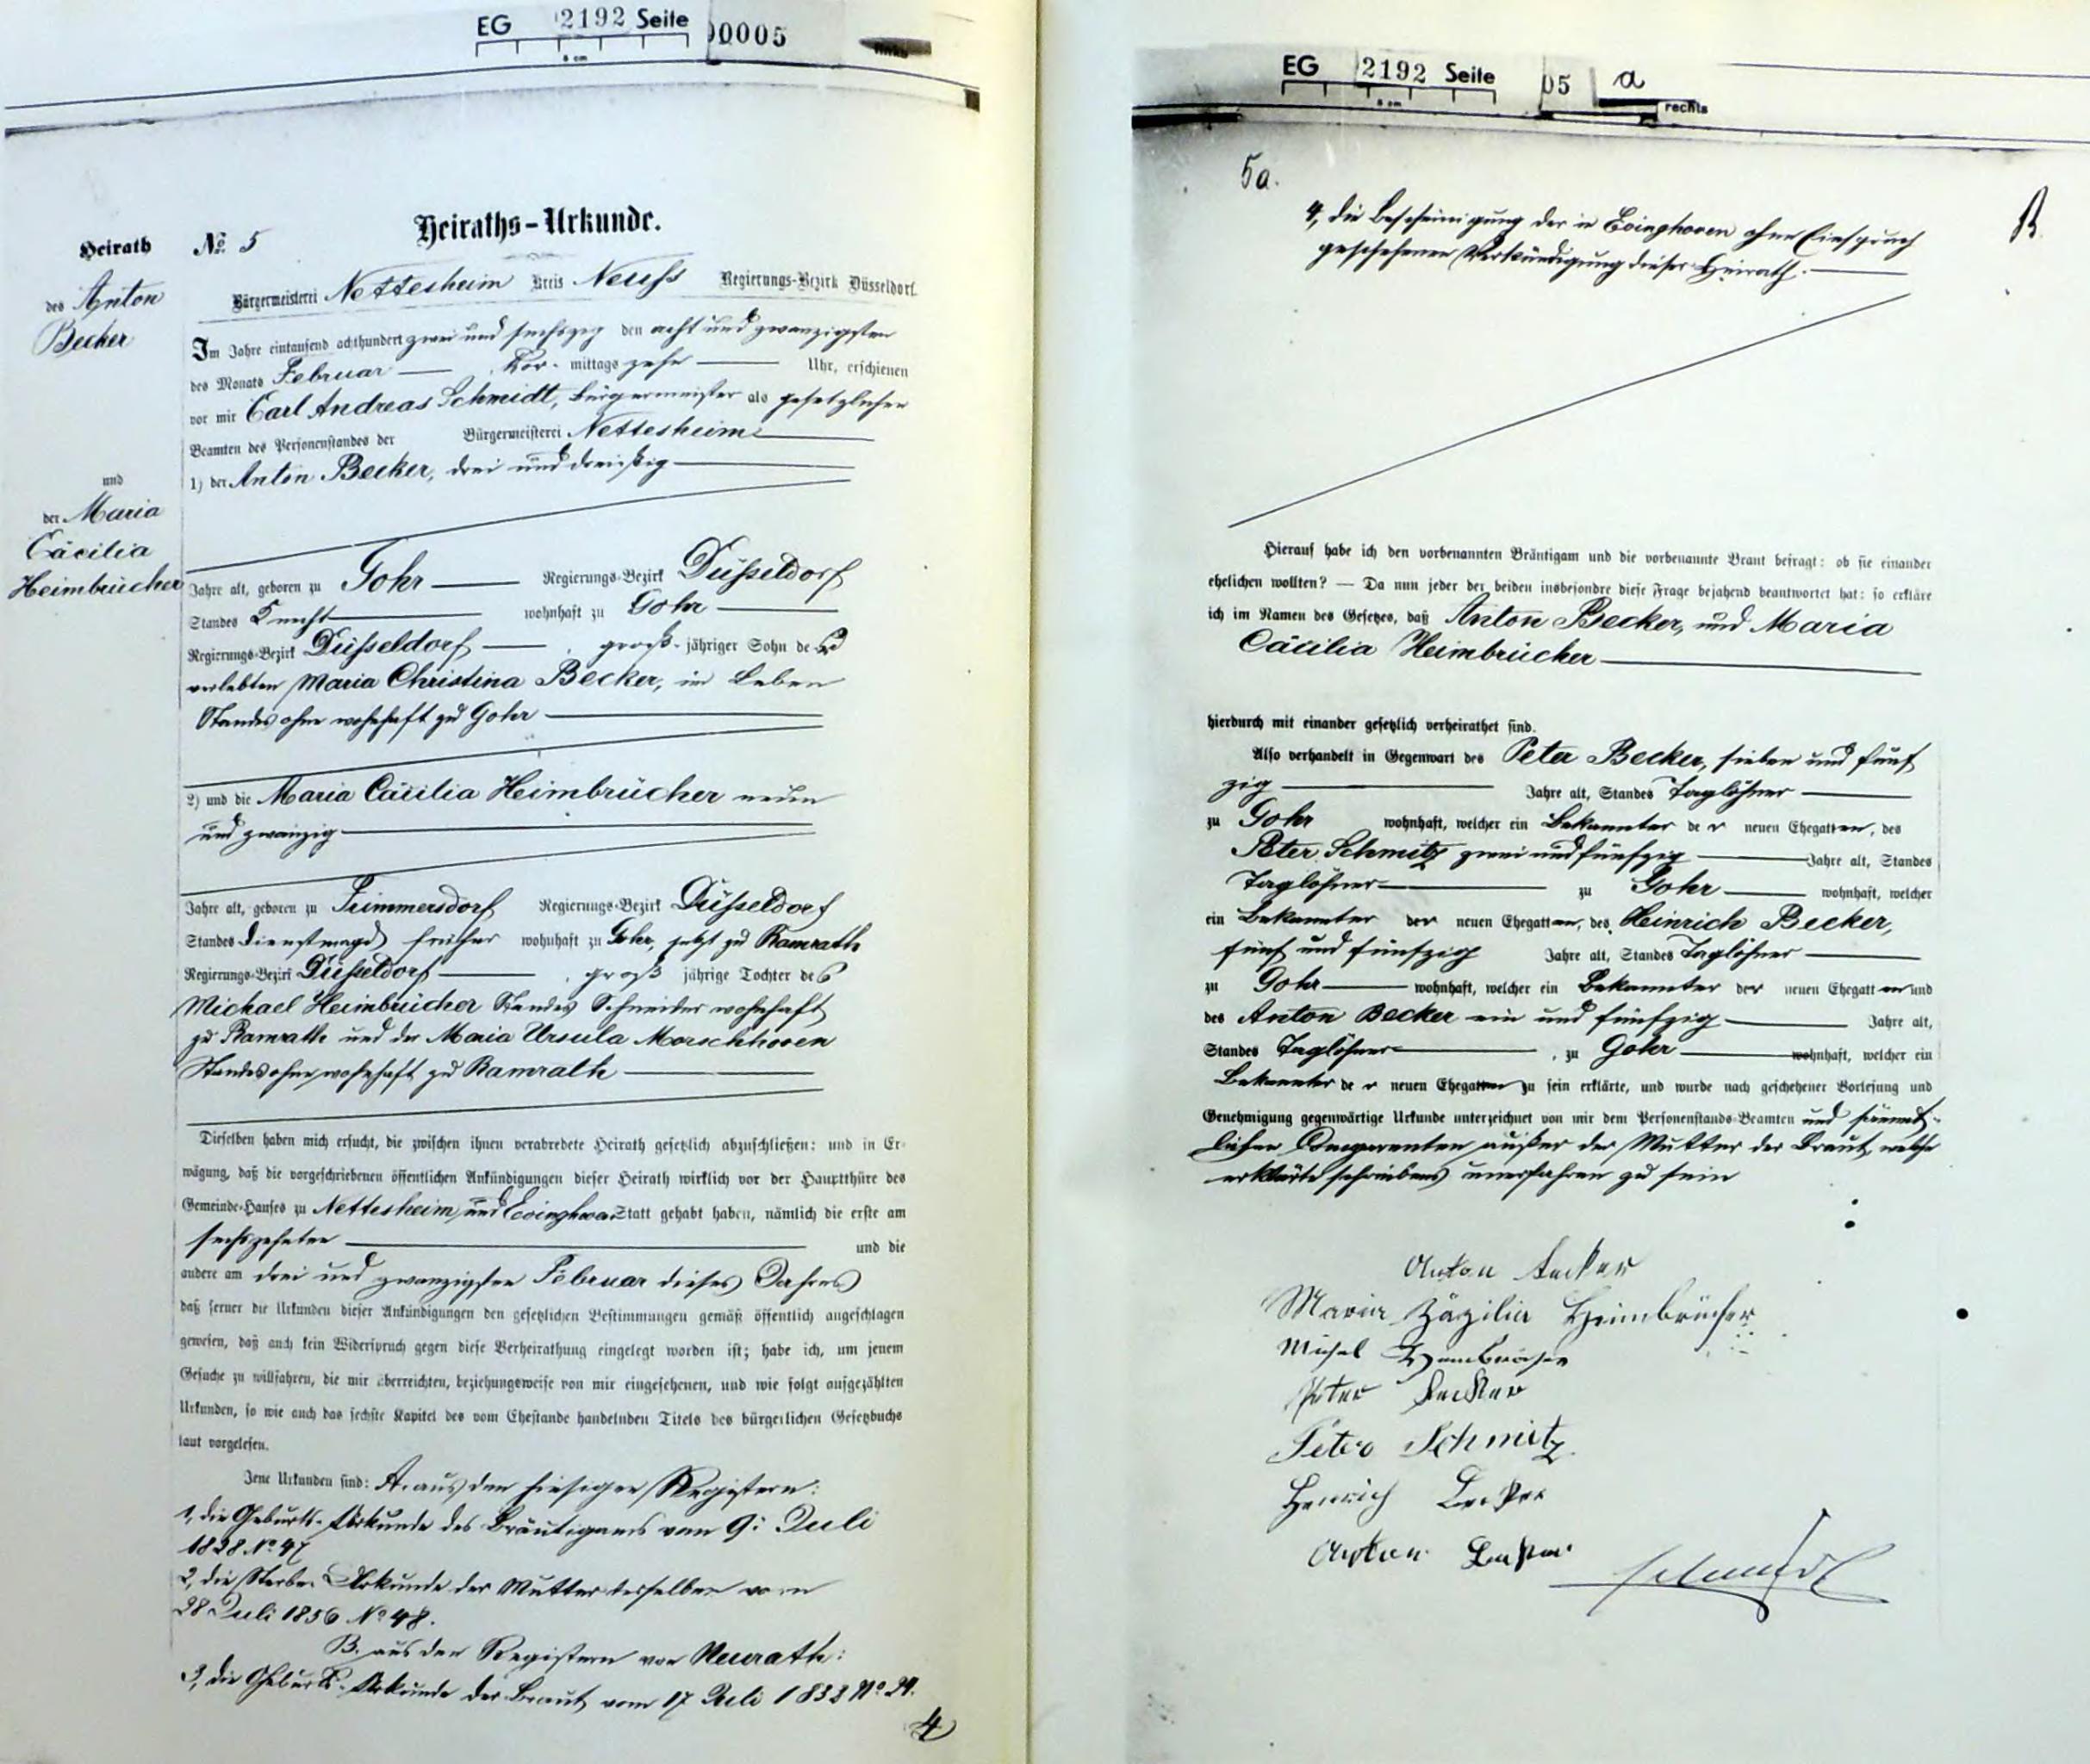 EG 2192 Seite 00005
8 cm
links
Heiraths-Urkunde.
Heirath
№ 5
des Anton
Becker
und
der Maria
Cäcilia
Heimbrücher
Bürgermeisterei Nettesheim Kreis Neuss Regierungs-Bezirk Düsseldorf.
Im Jahre eintausend achthundert zwei und sechszig den acht und zwanzigsten
des Monats Februar Vor-mittags zehn Uhr, erschienen
vor mir Carl Andreas Schmidt, Bürgermeister als gesetzlichen
Beamten des Personenstandes der Bürgermeisterei Nettesheim
1) der Anton Becker, drei und dreißig
Jahre alt, geboren zu Gohr Regierungs-Bezirk Düsseldorf
Standes Knecht wohnhaft zu Gohr
Regierungs-Bezirk Düsseldorf, groß-jähriger Sohn der
verlebten Maria Christina Becker, im Leben
Standes ohne wohnhaft zu Gohr
2) und die Maria Cäcilia Heimbrücher neun
und zwanzig
Jahre alt, geboren zu Frimmersdorf Regierungs-Bezirk Düsseldorf
Standes Dienstmagd früher wohnhaft zu Gohr, jetzt zu Ramrath
Regierungs-Bezirk Düsseldorf, groß jährige Tochter des
Michael Heimbrücher Standes Schneider wohnhaft
zu Ramrath und der Maria Ursula Morschhoven
Standes ohne wohnhaft zu Ramrath
Dieselben haben mich ersucht, die zwischen ihnen verabredete Heirath gesetzlich abzuschließen: und in Er-
wägung, daß die vorgeschriebenen öffentlichen Ankündigungen dieser Heirath wirklich vor der Hauptthüre des
Gemeinde-Hauses zu Nettesheim und Evinghoven Statt gehabt haben, nämlich die erste am
sechszehnten und die
andere am drei und zwanzigsten Februar dieses Jahres
daß ferner die Urkunden dieser Ankündigungen den gesetzlichen Bestimmungen gemäß öffentlich angeschlagen
gewesen, daß auch kein Widerspruch gegen diese Verheirathung eingelegt worden ist; habe ich, um jenem
Gesuche zu willfahren, die mir überreichten, beziehungsweise von mir eingesehenen, und wie folgt aufgezählten
Urkunden, so wie auch das sechste Kapitel des vom Ehestande handelnden Titels des bürgerlichen Gesetzbuchs
laut vorgelesen.
Jene Urkunden sind: A. aus den hiesigen Registern:
1, die Geburts-Urkunde des Bräutigams vom 9. Juli
1828 № 47
2, die Sterbe-Urkunde der Mutter desselben vom
28 Juli 1856 № 48.
B. aus den Registern von Neurath:
3, die Geburts-Urkunde der Braut vom 17 Juli 1832 № 24.
4
EG 2192 Seite 05 a
8 cm
rechts
5a.
4, die Bescheinigung der in Evinghoven ohne Einspruch
geschehenen Verkündigung dieser Heirath.
Hierauf habe ich den vorbenannten Bräutigam und die vorbenannte Braut befragt: ob sie einander
ehelichen wollten? — Da nun jeder der beiden insbesondre diese Frage bejahend beantwortet hat: so erkläre
ich im Namen des Gesetzes, daß Anton Becker, und Maria
Cäcilia Heimbrücher
hierdurch mit einander gesetzlich verheirathet sind.
Also verhandelt in Gegenwart des Peter Becker, sieben und fünf
zig Jahre alt, Standes Taglöhner
zu Gohr wohnhaft, welcher ein Bekannter der neuen Ehegatten, des
Peter Schmitz zwei und fünfzig Jahre alt, Standes
Taglöhner zu Gohr wohnhaft, welcher
ein Bekannter der neuen Ehegatten, des Heinrich Becker,
fünf und fünfzig Jahre alt, Standes Taglöhner
zu Gohr wohnhaft, welcher ein Bekannter der neuen Ehegatten und
des Anton Becker ein und fünfzig Jahre alt,
Standes Taglöhner, zu Gohr wohnhaft, welcher ein
Bekannter der neuen Ehegatten zu sein erklärte, und wurde nach geschehener Vorlesung und
Genehmigung gegenwärtige Urkunde unterzeichnet von mir dem Personenstands-Beamten und sämmt-
lichen Comparenten außer der Mutter der Braut, welche
erklärte schreibens unerfahren zu sein
Anton Becker
Maria Zäzilia Heimbrücher
Michel Heimbrücher
Peter Becker
Peter Schmitz
Henrich Becker
Anton Becker
Schmidt